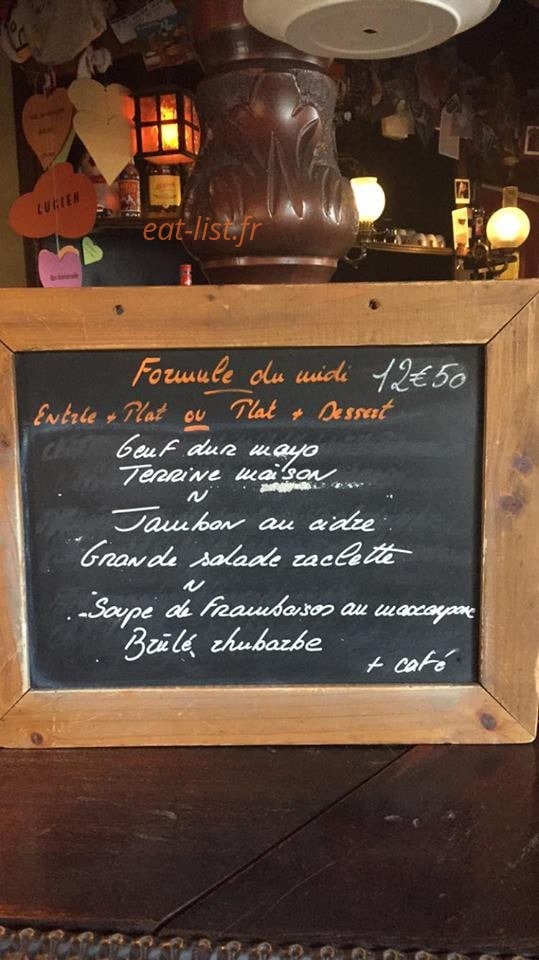 LUCIEN
eat-list.fr
Formule du midi 12€50
Entrée + Plat ou Plat + Dessert
Oeuf dur mayo
Terrine maison
~
Jambon au cidre
Grande salade raclette
~
Soupe de framboises au mascarpone
Brûlé rhubarbe
+ café